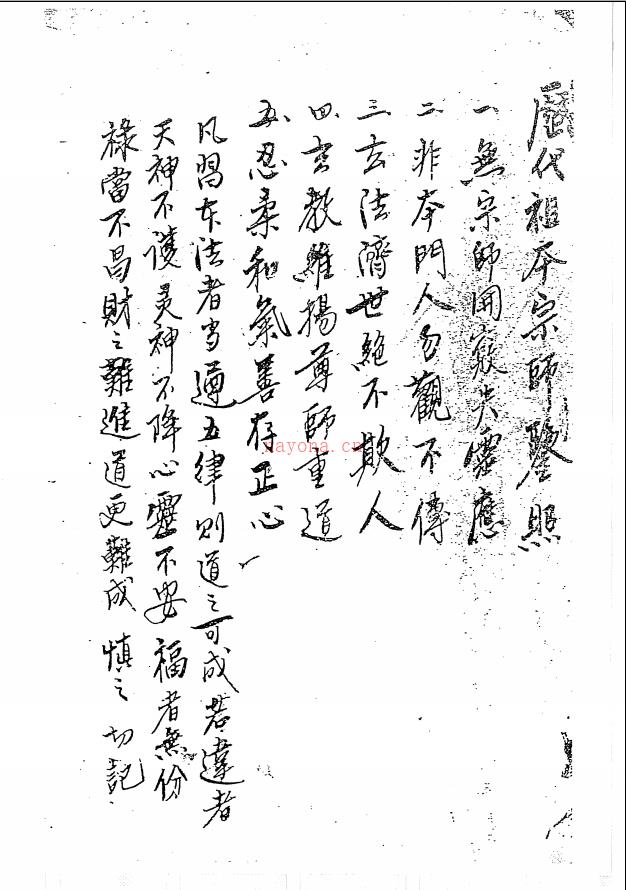 歷代祖本宗師鑒照
一、無宗師開竅失靈應
二、非本門人勿觀不傳
三、玄法濟世絕不欺人
四、玄教維揚尊師重道
五、忍柔和氣善存正心
凡習本法者当遵五律则道之可成若違者
天神不護灵神不降心靈不安福者無份
祿當不昌財之難進道更難成 慎之切記
nayona.cn